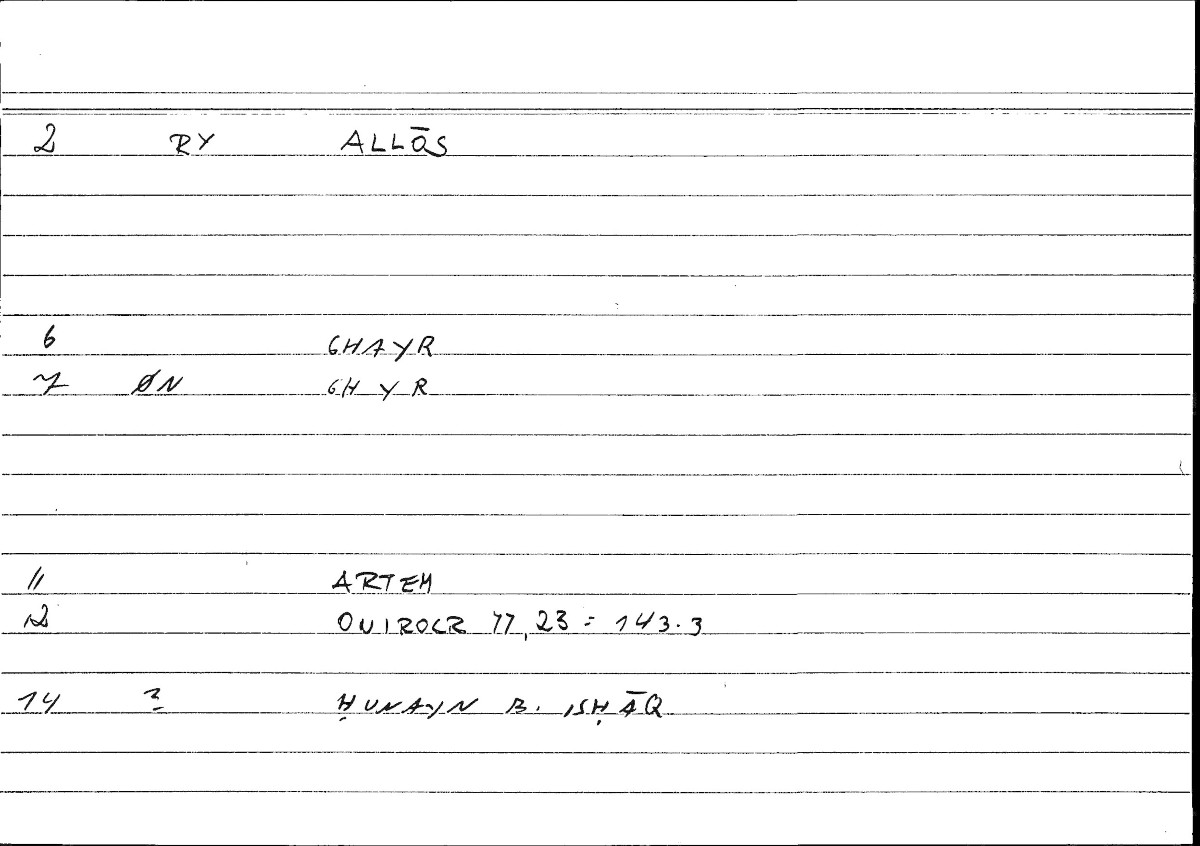 2 RY ALLŌS
6 GHAYR
7 ØN GH Y R
11 ARTEM
12 OVIROCR 77,23 = 143.3
14 ? ḤUNAYN B. ISḤĀQ